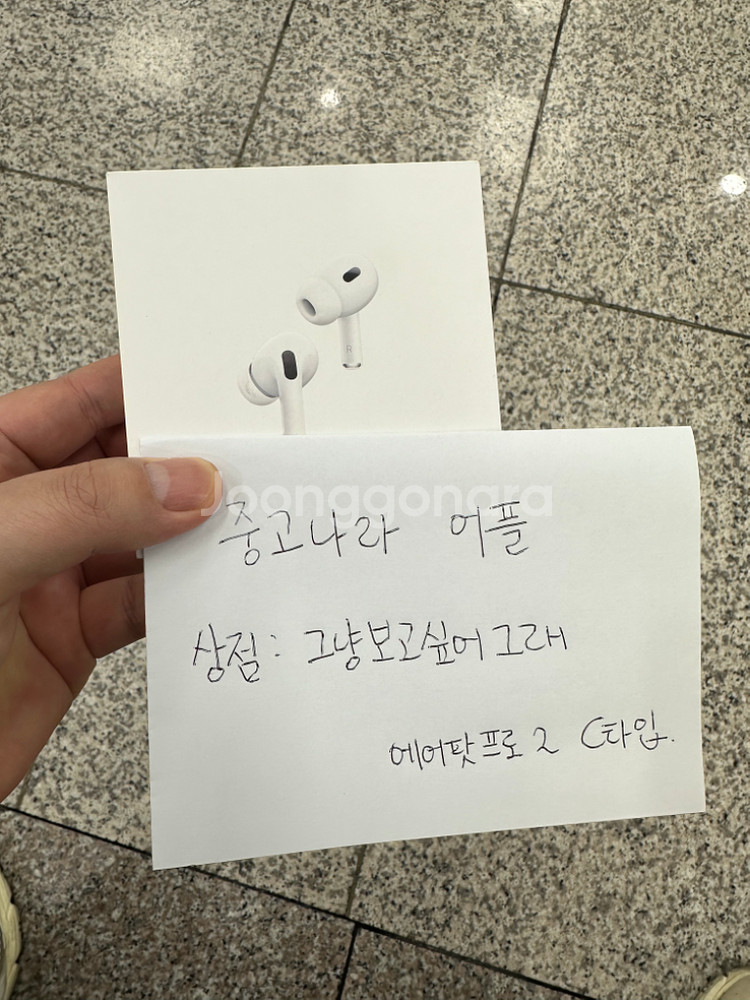 R
Joonggonara
중고나라 어플
상점: 그냥보고싶어그래
에어팟프로2 C타입.